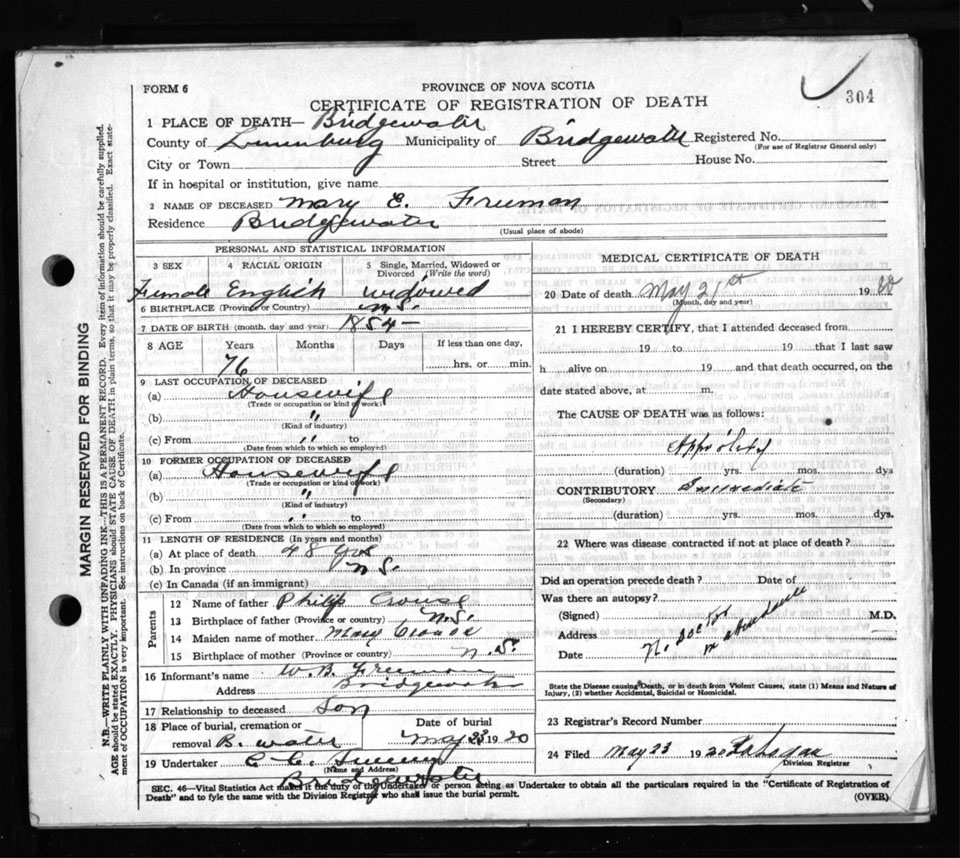 304
FORM 6
PROVINCE OF NOVA SCOTIA
CERTIFICATE OF REGISTRATION OF DEATH
1 PLACE OF DEATH— Bridgewater
County of Lunenburg Municipality of Bridgewater Registered No.
(For use of Registrar General only)
City or Town Street House No.
If in hospital or institution, give name
2 NAME OF DECEASED Mary E. Freeman
Residence Bridgewater
(Usual place of abode)
PERSONAL AND STATISTICAL INFORMATION
3 SEX 4 RACIAL ORIGIN 5 Single, Married, Widowed or Divorced (Write the word)
Female English widowed
6 BIRTHPLACE (Province or Country) N.S.
7 DATE OF BIRTH (month, day and year) 1854 –
8 AGE Years Months Days If less than one day,
76 hrs. or min.
9 LAST OCCUPATION OF DECEASED
(a) Housewife
(Trade or occupation or kind of work)
(b) "
(Kind of industry)
(c) From " to
(Date from which to which so employed)
10 FORMER OCCUPATION OF DECEASED
(a) Housewife
(Trade or occupation or kind of work)
(b) "
(Kind of industry)
(c) From " to
(Date from which to which so employed)
11 LENGTH OF RESIDENCE (In years and months)
(a) At place of death 48 yrs
(b) In province N S.
(c) In Canada (if an immigrant)
Parents
12 Name of father Philip Crouse
13 Birthplace of father (Province or country) N.S.
14 Maiden name of mother Mary Crouse
15 Birthplace of mother (Province or country) N. S.
16 Informant's name W. B. Freeman
Address Bridgewater
17 Relationship to deceased Son
18 Place of burial, cremation or Date of burial
removal B. water May 23 1920
19 Undertaker C. C.
(Name and Address)
Bridgewater
MEDICAL CERTIFICATE OF DEATH
20 Date of death May 21st 19
(Month, day and year)
21 I HEREBY CERTIFY, that I attended deceased from
19 to 19 that I last saw
h alive on 19 and that death occurred, on the
date stated above, at m.
The CAUSE OF DEATH was as follows:
(duration) yrs. mos. dys
CONTRIBUTORY Immediate
(Secondary)
(duration) yrs. mos. dys.
22 Where was disease contracted if not at place of death?
Did an operation precede death? Date of
Was there an autopsy?
(Signed) M.D.
Address
Date
N. Doctor in attendance
State the Disease causing Death, or in death from Violent Causes, state (1) Means and Nature of
Injury, (2) whether Accidental, Suicidal or Homicidal.
23 Registrar's Record Number
24 Filed May 23 1920
Division Registrar
SEC. 46—Vital Statistics Act makes it the duty of the Undertaker or person acting as Undertaker to obtain all the particulars required in the "Certificate of Registration of
Death" and to fyle the same with the Division Registrar who shall issue the burial permit. (OVER)
MARGIN RESERVED FOR BINDING
N.B.—WRITE PLAINLY WITH UNFADING INK—THIS IS A PERMANENT RECORD. Every item of information should be carefully supplied.
AGE should be stated EXACTLY. PHYSICIANS should STATE CAUSE OF DEATH in plain terms, so that it may be properly classified. Exact state-
ment of OCCUPATION is very important. See instructions on back of Certificate.